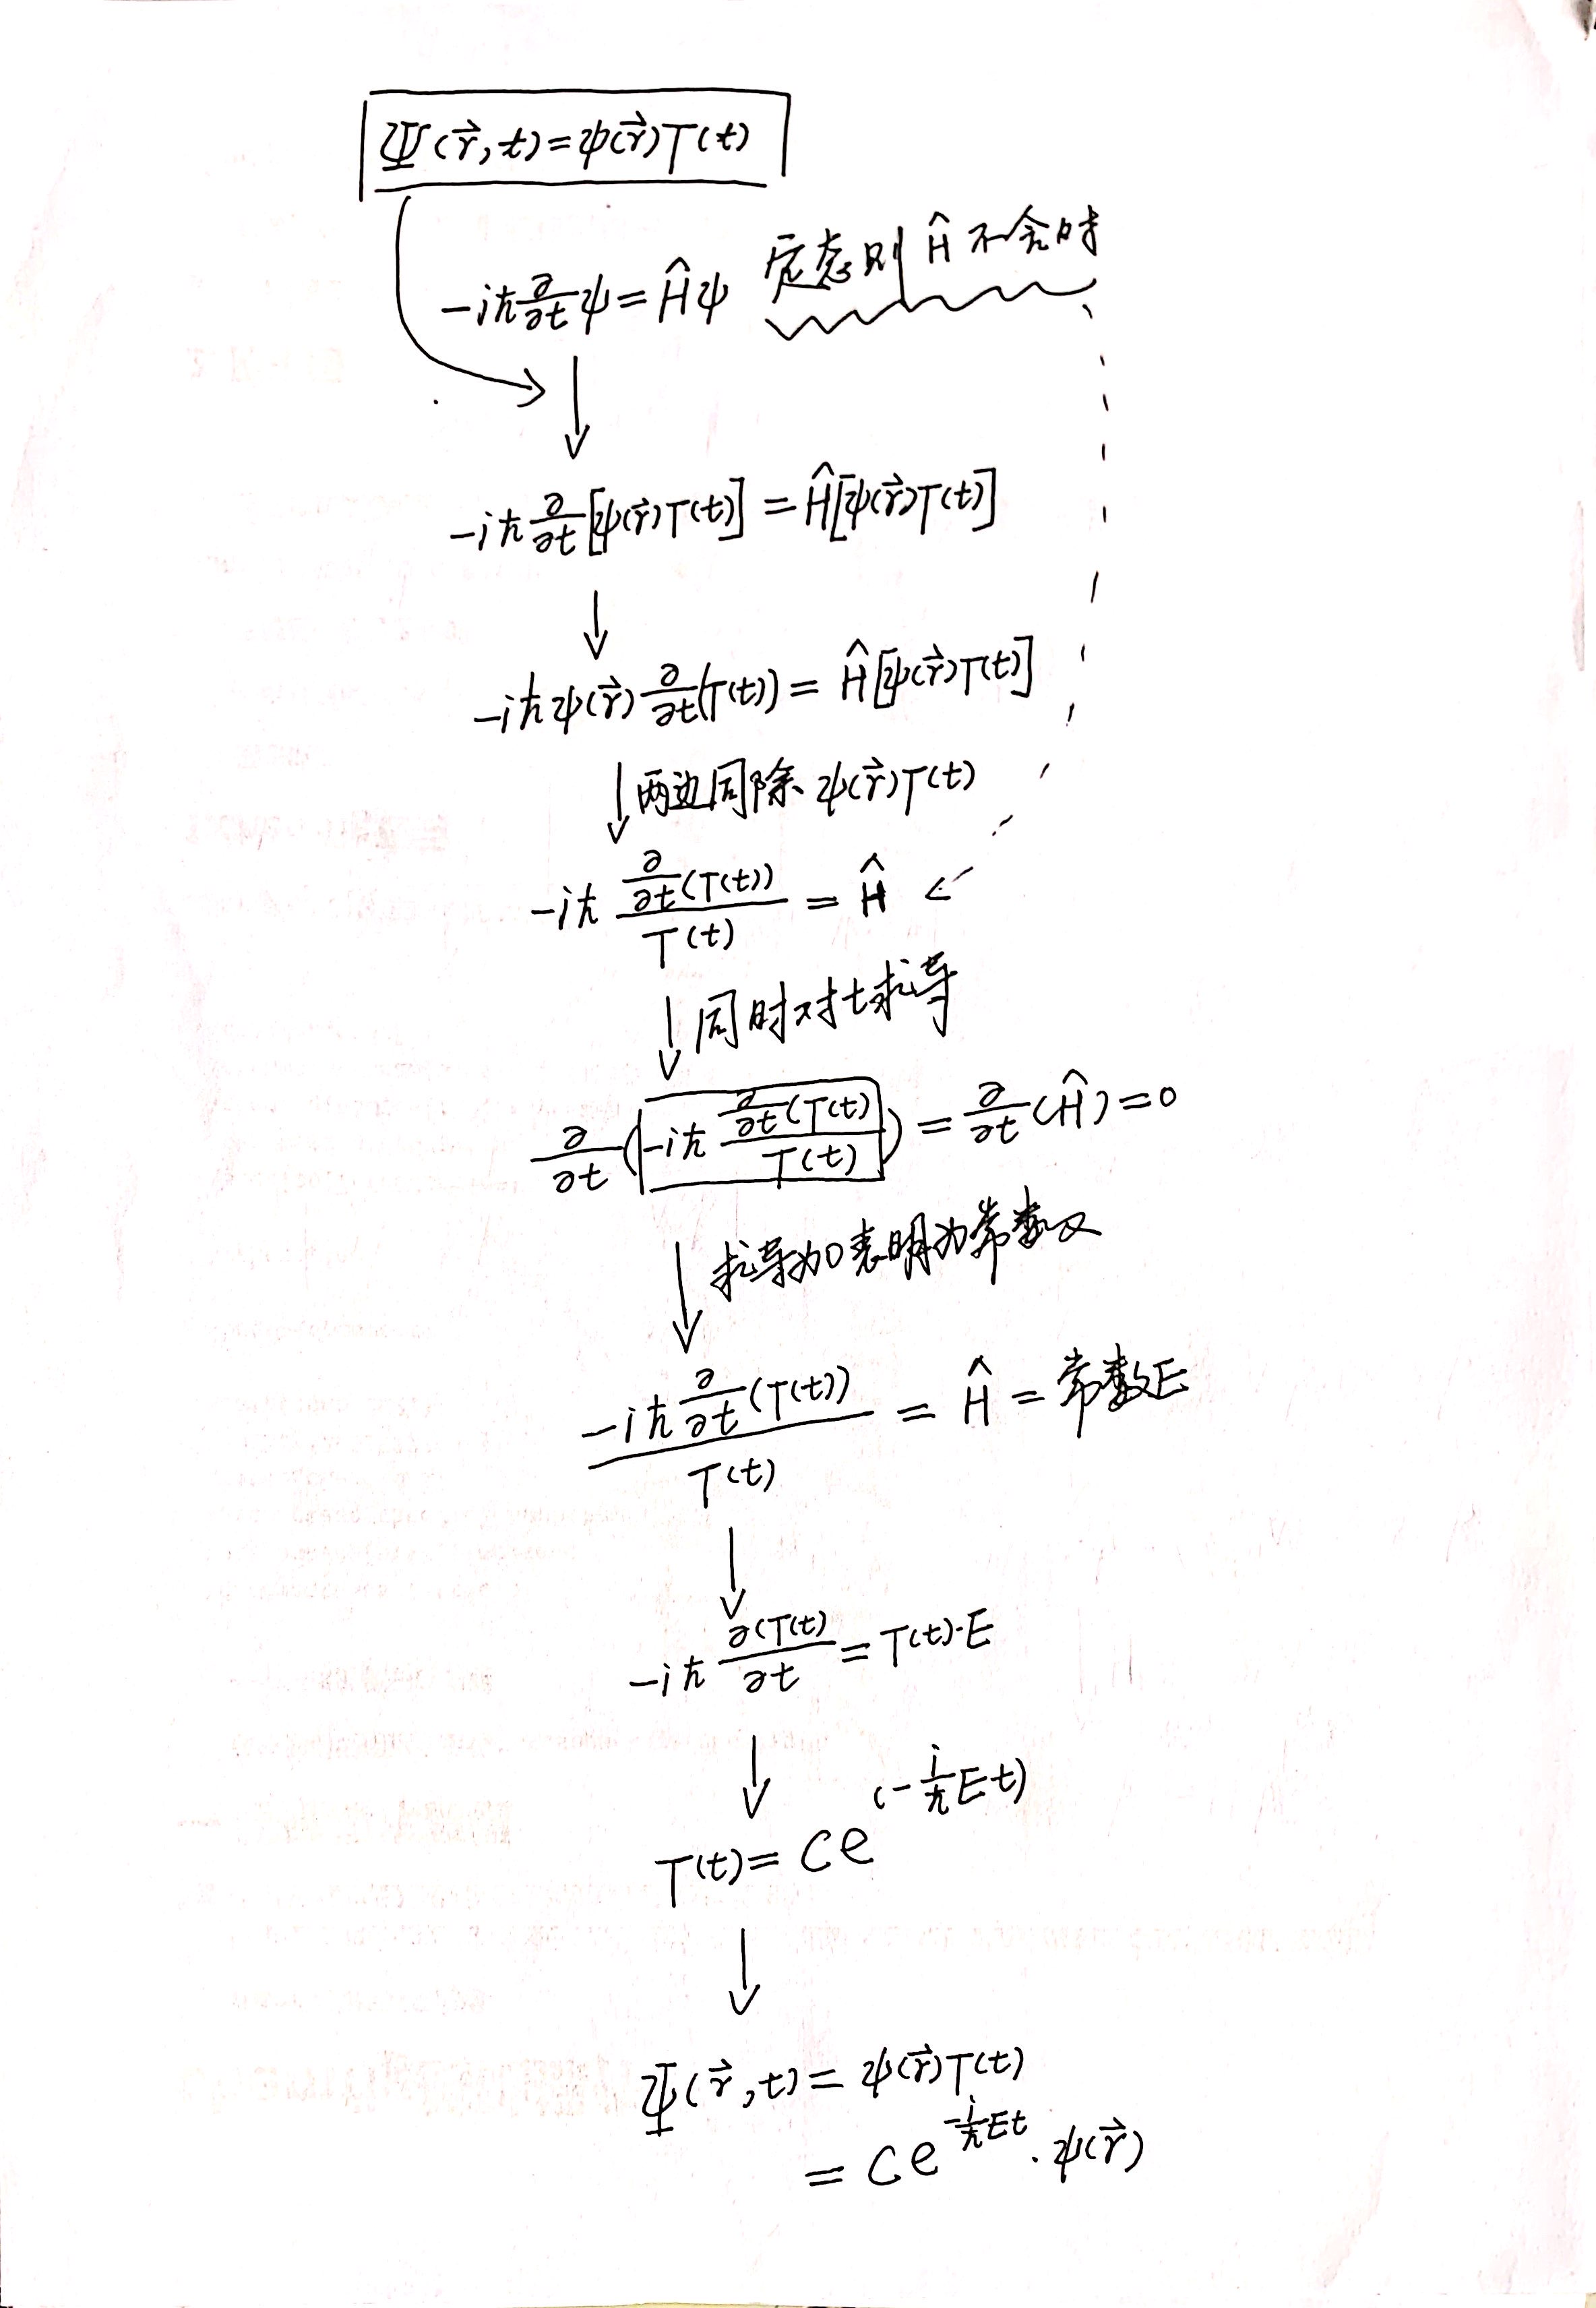 Ψ(r⃗,t)=ψ(r⃗)T(t)
-iℏ∂/∂t ψ=Ĥψ 定态则Ĥ不含时
-iℏ ∂/∂t[ψ(r⃗)T(t)]=Ĥ[ψ(r⃗)T(t)]
-iℏψ(r⃗)∂/∂t(T(t))=Ĥ[ψ(r⃗)T(t)]
两边同除ψ(r⃗)T(t)
-iℏ (∂/∂t(T(t)))/T(t) = Ĥ
同时对t求导
∂/∂t(-iℏ (∂/∂t(T(t))/T(t)) = ∂/∂t(Ĥ)=0
求导为0表明为常数
(-iℏ ∂/∂t(T(t)))/T(t) = Ĥ = 常数E
-iℏ ∂(T(t)/∂t = T(t)·E
T(t)= Ce^(-i/ℏ Et)
Ψ(r⃗,t)=ψ(r⃗)T(t)
= Ce^-i/ℏ Et · ψ(r⃗)